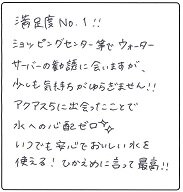 満足度No.1!!
ショッピングセンター等でウォーター
サーバーの勧誘に会いますが、
少しも気持ちがゆらぎません!!
アクアス5に出会ったことで
水への心配ゼロ✨
いつでも安心でおいしい水を
使える!ひかえめに言って最高!!